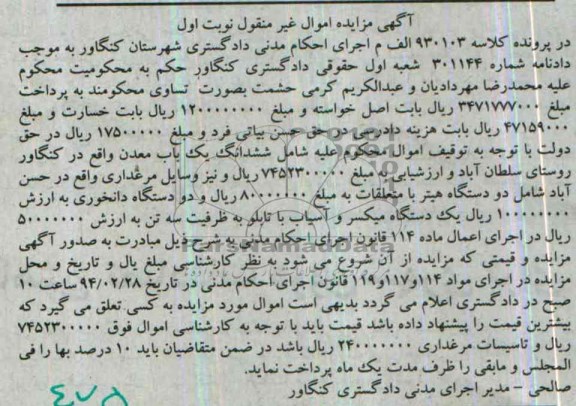 آگهی مزایده اموال غیر منقول نوبت اول
در پرونده کلاسه ۹۳۰۱۰۳ الف م اجرای احکام مدنی دادگستری شهرستان کنگاور به موجب
دادنامه شماره ۳۰۱۱۴۴ شعبه اول حقوقی دادگستری کنگاور حکم به محکومیت محکوم
علیه محمدرضا مهردادیان و عبدالکریم کرمی حشمت بصورت تساوی محکومند به پرداخت
مبلغ ۳۴۷۱۷۷۷۰۰۰ ریال بابت اصل خواسته و مبلغ ۱۲۰۰۰۰۰۰۰۰ ریال بابت خسارت و مبلغ
۴۷۱۵۹۰۰۰ ریال بابت هزینه دادرسی در حق حسن بیاتی فرد و مبلغ ۱۷۵۰۰۰۰۰ ریال در حق
دولت با توجه به توقیف اموال محکوم علیه شامل ششدانگ یک باب معدن واقع در کنگاور
روستای سلطان آباد و ارزشیابی به مبلغ ۷۴۵۲۳۰۰۰۰۰ ریال و نیز وسایل مرغداری واقع در حسن
آباد شامل دو دستگاه هیتر با متعلقات به مبلغ ۸۰۰۰۰۰۰۰ ریال و دو دستگاه دانخوری به ارزش
۱۰۰۰۰۰۰۰۰ ریال یک دستگاه میکسر و آسیاب با تابلو به ظرفیت سه تن به ارزش ۵۰۰۰۰۰۰۰
ریال در اجرای اعمال ماده ۱۱۴ قانون اجرای احکام مدنی به شرح ذیل مبادرت به صدور آگهی
مزایده و قیمتی که مزایده از آن شروع می شود به نظر کارشناسی مبلغ یال و تاریخ و محل
مزایده در اجرای مواد ۱۱۴و۱۱۷و۱۱۹ قانون اجرای احکام مدنی در تاریخ ۹۴/۰۲/۲۸ ساعت ۱۰
صبح در دادگستری اعلام می گردد بدیهی است اموال مورد مزایده به کسی تعلق می گیرد که
بیشترین قیمت را پیشنهاد داده باشد قیمت باید با توجه به کارشناسی اموال فوق ۷۴۵۲۳۰۰۰۰۰
ریال و تاسیسات مرغداری ۲۴۰۰۰۰۰۰۰ ریال باشد در ضمن متقاضیان باید ۱۰ درصد بها را فی
المجلس و مابقی را ظرف مدت یک ماه پرداخت نماید.
صالحی - مدیر اجرای مدنی دادگستری کنگاور